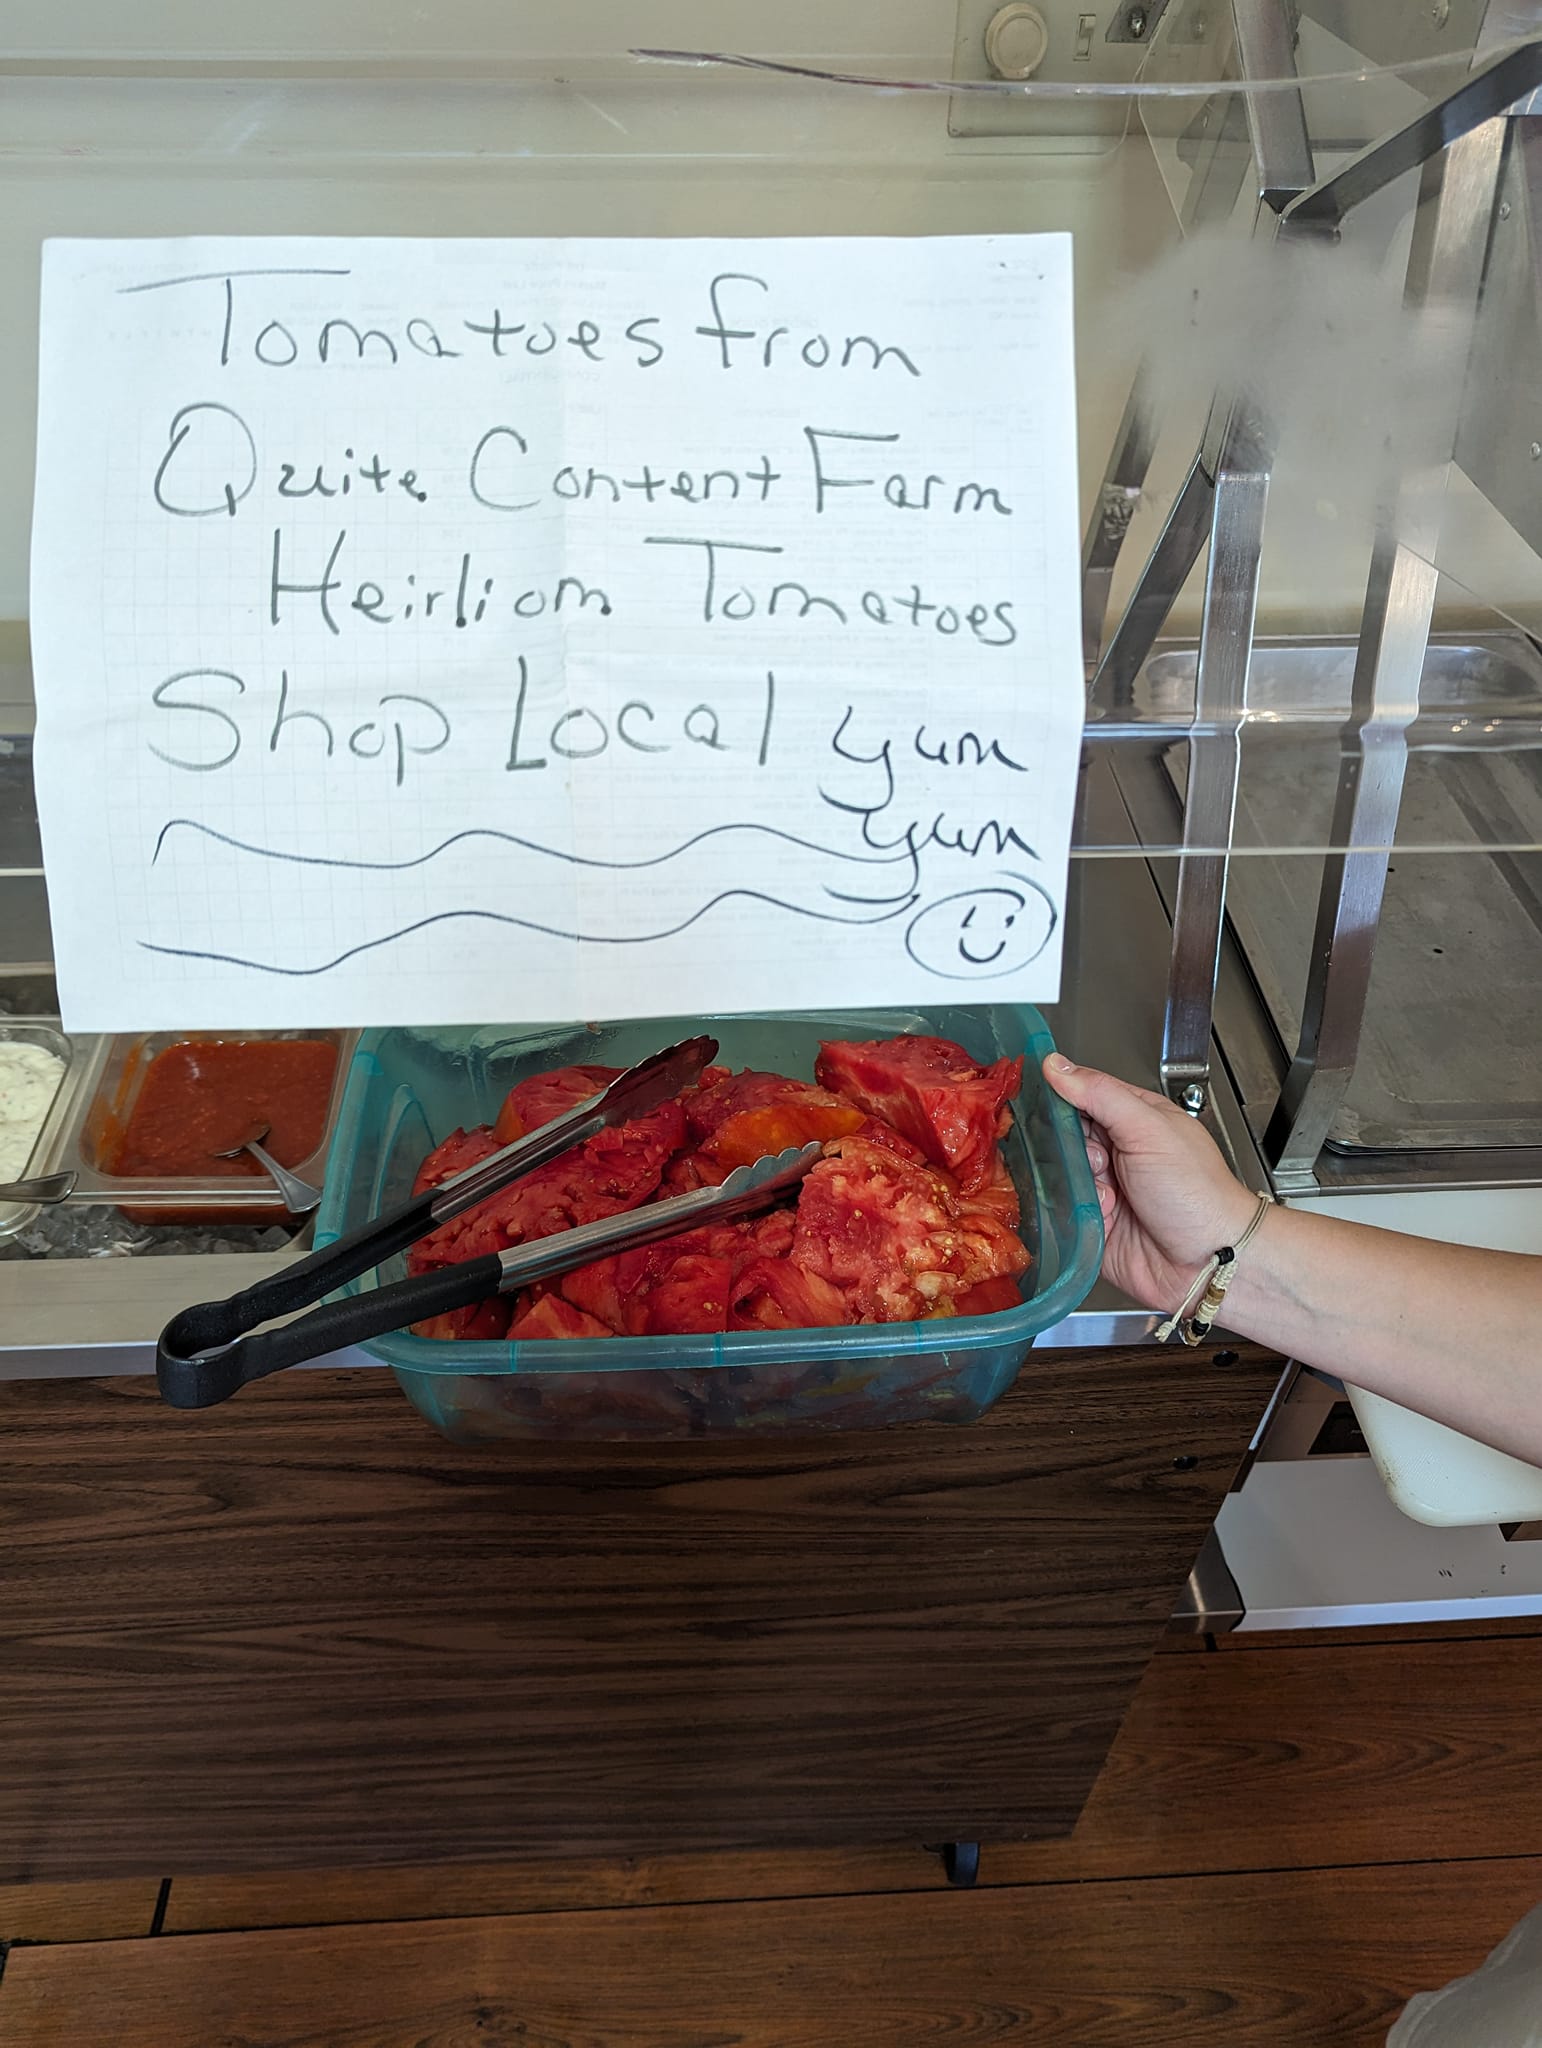 Tomatoes from
Quite Content Farm
Heirliom Tomatoes
Shop Local yum
yum